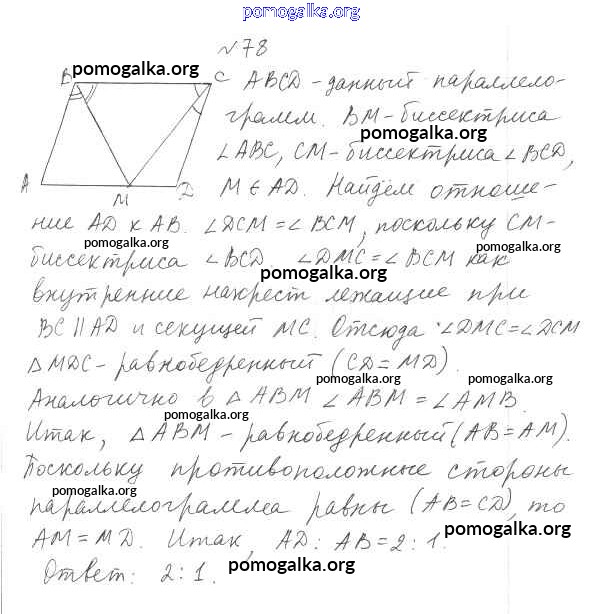 pomogalka.org
№78
B pomogalka.org C ABCD - данный параллело-
грамм. BM - биссектриса
pomogalka.org
∠ABC, CM - биссектриса ∠BCD,
A M D M ∈ AD. Найдём отноше-
ние AD к AB. ∠DCM = ∠BCM, поскольку CM -
pomogalka.org pomogalka.org
биссектриса ∠BCD ∠DMC = ∠BCM как
pomogalka.org
внутренние накрест лежащие при
BC || AD и секущей MC. Отсюда ∠DMC = ∠DCM
△MDC - равнобедренный (CD = MD).
pomogalka.org pomogalka.org
Аналогично в △ABM ∠ABM = ∠AMB.
pomogalka.org
Итак, △ABM - равнобедренный (AB = AM).
Поскольку противоположные стороны
pomogalka.org
параллелограмма равны (AB = CD), то
pomogalka.org
AM = MD. Итак, AD : AB = 2 : 1.
Ответ: 2 : 1. pomogalka.org
pomogalka.org